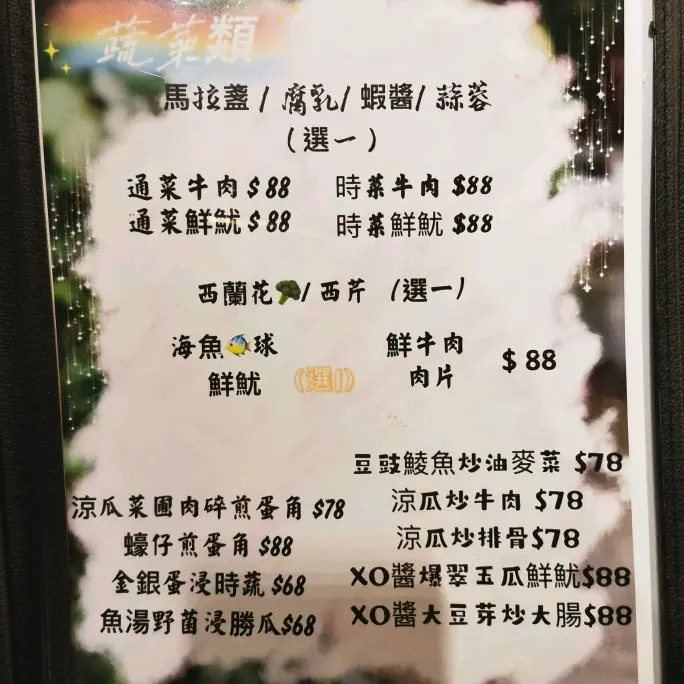 蔬菜類
馬拉盞 / 腐乳 / 蝦醬 / 蒜蓉
（選一）
通菜牛肉 $ 88 時菜牛肉 $88
通菜鮮魷 $ 88 時菜鮮魷 $88
西蘭花🥦/ 西芹 （選一）
海魚🐠球 鮮牛肉 $ 88
鮮魷 (選1) 肉片
豆豉鯪魚炒油麥菜 $78
涼瓜菜圃肉碎煎蛋角 $78 涼瓜炒牛肉 $78
蠔仔煎蛋角 $88 涼瓜炒排骨$78
金銀蛋浸時蔬 $68 XO醬爆翠玉瓜鮮魷$88
魚湯野菌浸勝瓜$68 XO醬大豆芽炒大腸$88